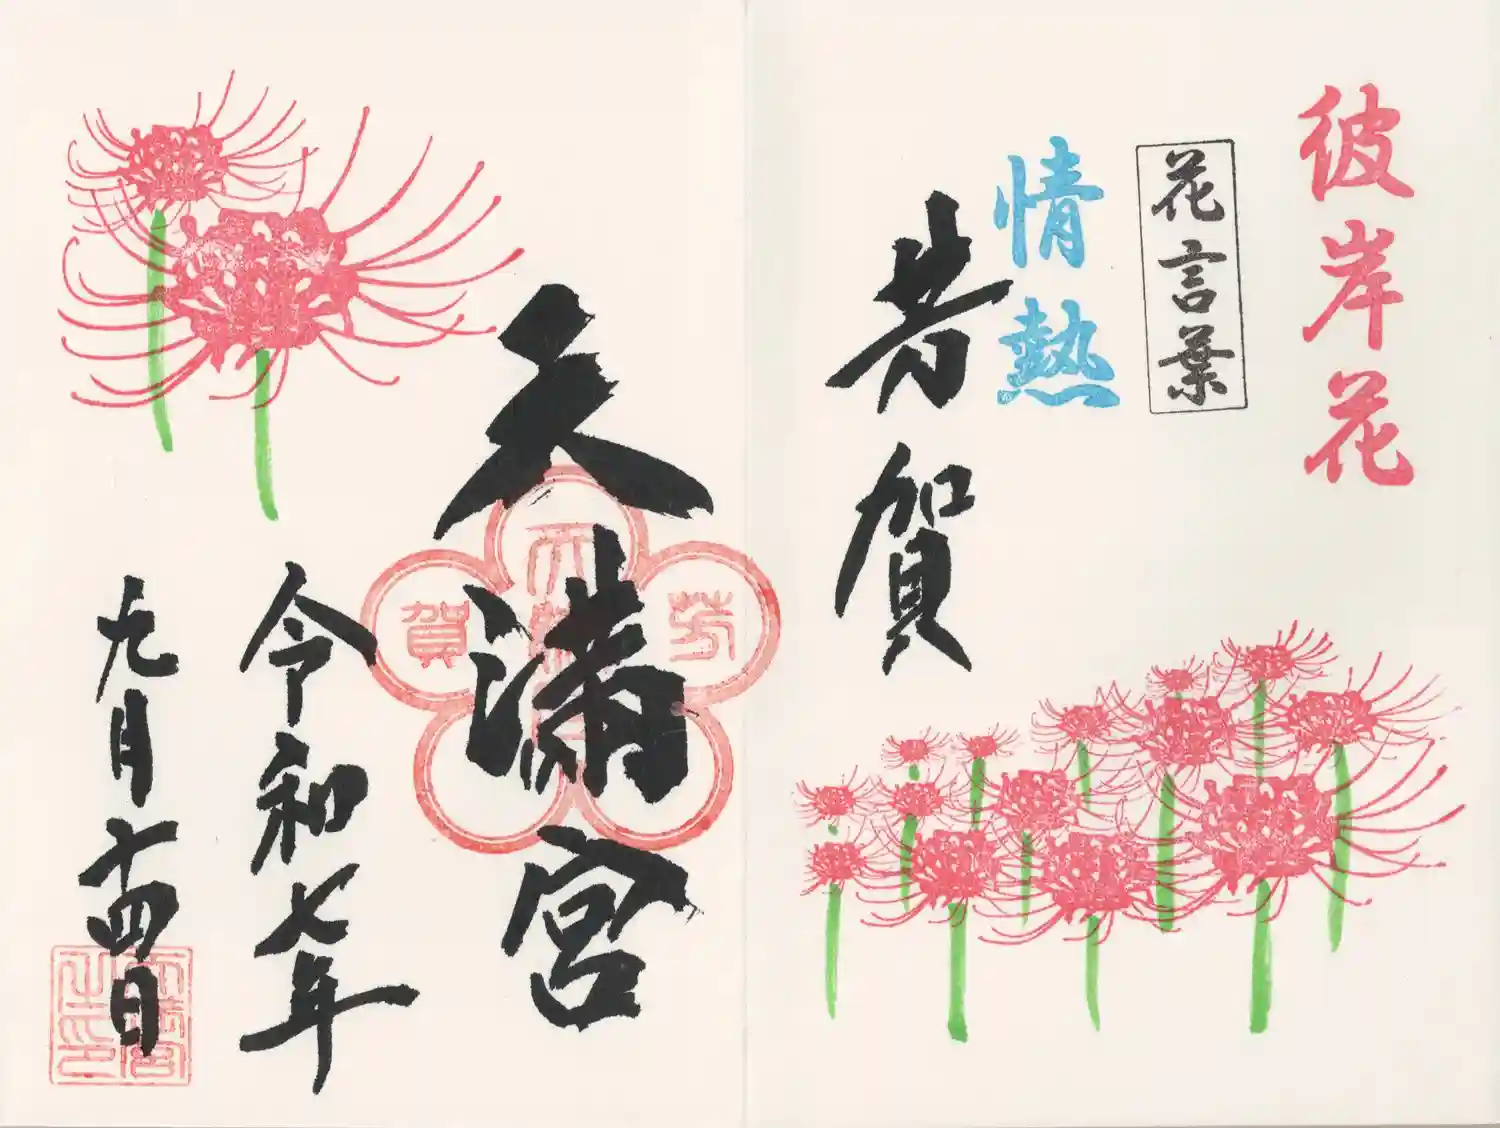 彼岸花
花言葉
情熱
芳賀
天満宮
芳
賀
令和七年
九月十四日